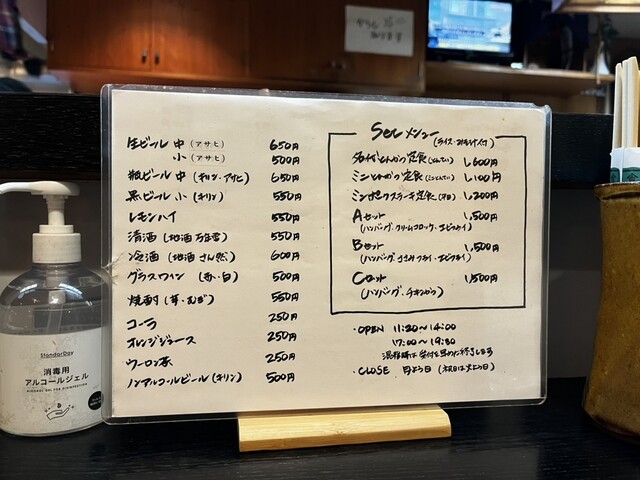 生ビール 中 (アサヒ) 650円
小 (アサヒ) 500円
瓶ビール 中 (キリン、アサヒ) 650円
黒ビール 小 (キリン) 550円
レモンハイ 550円
清酒 (地酒 万年雪) 550円
冷酒 (地酒 さん然) 600円
グラスワイン (赤・白) 500円
焼酎 (芋・むぎ) 550円
コーラ 250円
オレンジジュース 250円
ウーロン茶 250円
ノンアルコールビール (キリン) 500円
Setメニュー
名代とんかつ定食 1,600円
ミニとんかつ定食 1,100円
ミンポークステーキ定食 1,200円
Aセット 1,500円
(ハンバーグ、クリームコロッケ、エビフライ)
Bセット 1,500円
(ハンバーグ、ささみフライ、エビフライ)
Cセット 1,500円
(ハンバーグ、チキンから)
・OPEN 11:20〜14:00
17:00〜19:30
混雑時は受付を早めに終了します
・CLOSE 月よう日 (祝日は火よう日)
StandarDay
消毒用
アルコールジェル